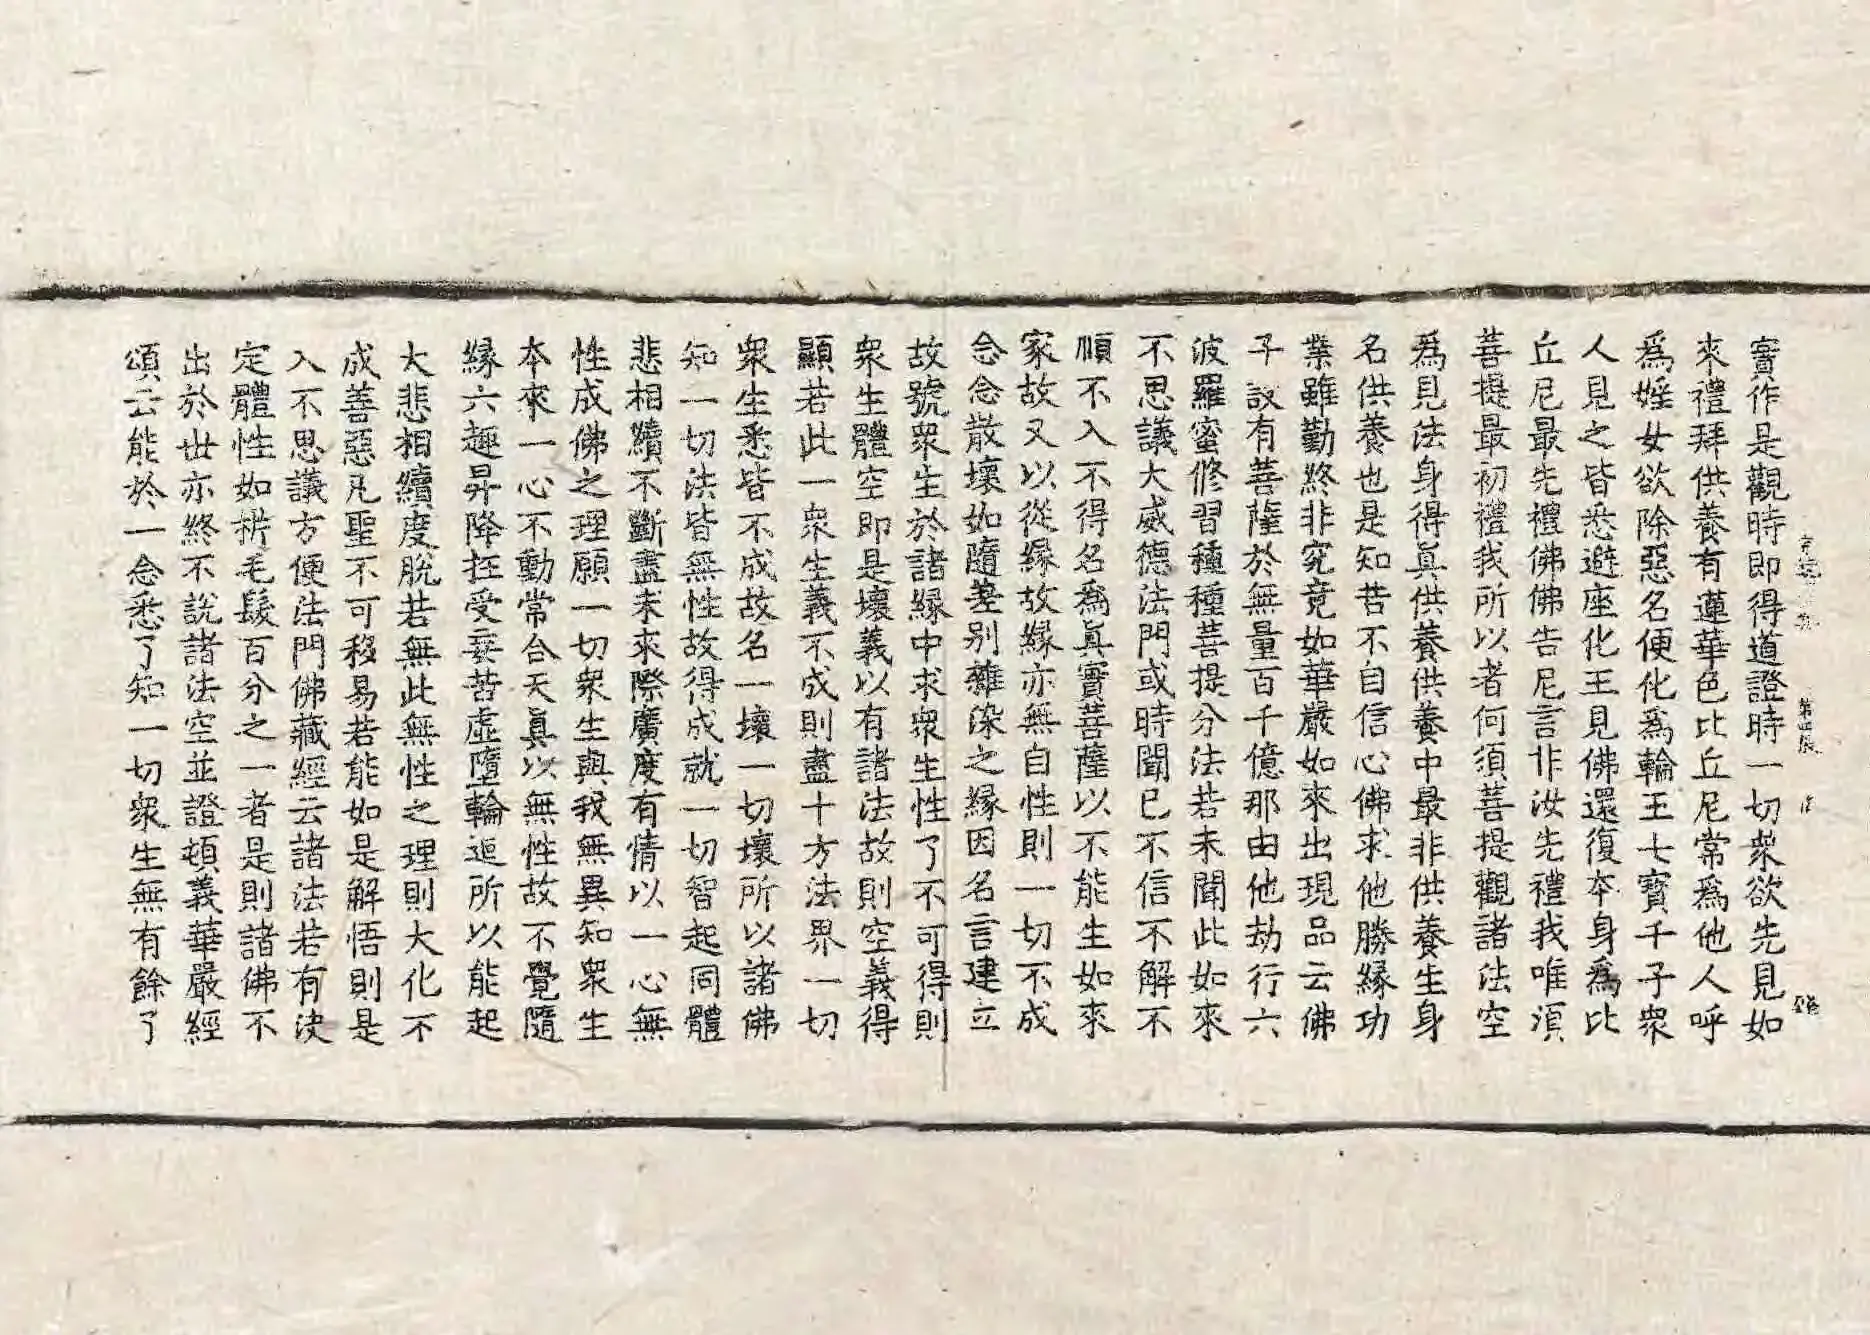 第四張
寶作是觀時即得道證時一切衆欲先見如
來禮拜供養有蓮華色比丘尼常爲他人呼
爲婬女欲除惡名便化爲輪王七寶千子衆
人見之皆悉避座化王見佛還復夲身爲比
丘尼最先禮佛佛告尼言非汝先禮我唯湏
菩提最初禮我所以者何須菩提觀諸法空
爲見法身得眞供養供養中最非供養生身
名供養也是知苦不自信心佛求他勝緣功
業雖勤終非究竟如華嚴如來出現品云佛
子設有菩薩於無量百千億那由他劫行六
波羅蜜修習種種菩提分法若未聞此如來
不思議大威德法門或時聞已不信不解不
順不入不得名爲眞實菩薩以不能生如來
家故又以從緣故緣亦無自性則一切不成
念念散壞如隨差别雜染之緣因名言建立
故號衆生於諸緣中求衆生性了不可得則
衆生體空即是壞義以有諸法故則空義得
顯若此一衆生義不成則盡十方法界一切
衆生悉皆不成故名一壞一切壞所以諸佛
知一切法皆無性故得成就一切智起同體
悲相續不斷盡未來際廣度有情以一心無
性成佛之理願一切衆生與我無異知衆生
夲來一心不動常合天眞以無性故不覺隨
緣六趣昇降抂受妄苦虛墮輪迴所以能起
大悲相續度脫若無此無性之理則大化不
成善惡凡聖不可移易若能如是解悟則是
入不思議方便法門佛藏經云諸法若有決
定體性如析毛髮百分之一者是則諸佛不
出於世亦終不說諸法空並證頓義華嚴經
頌云能於一念悉了知一切衆生無有餘了